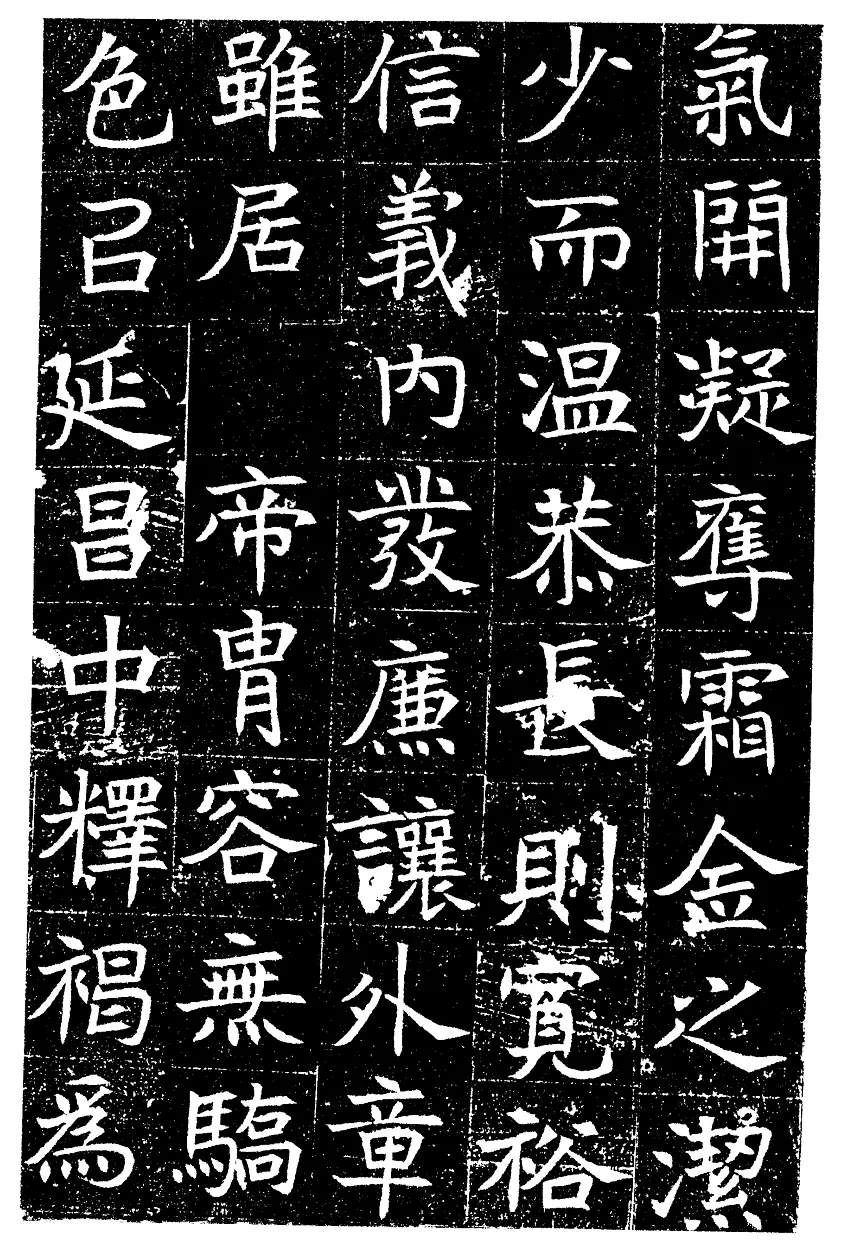 氣開凝奪霜金之潔
少而温恭長則寬裕
信義内發廉讓外章
雖居 帝胄容無驕
色召延昌中釋褐爲